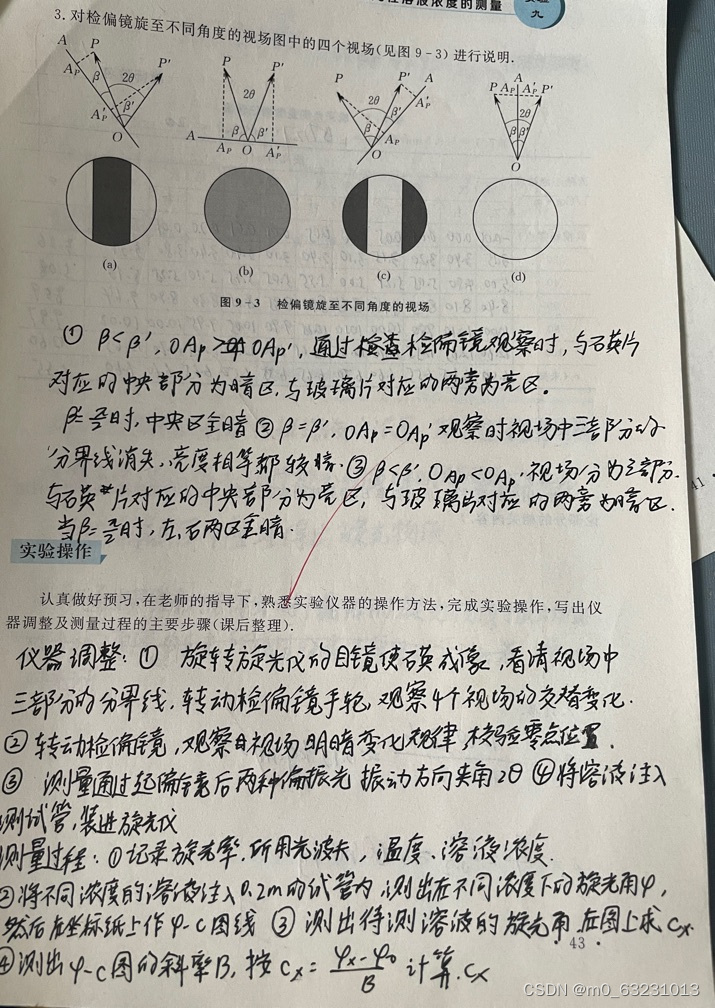 溶液浓度的测量
实验
九
3. 对检偏镜旋至不同角度的视场图中的四个视场(见图 9-3)进行说明.
A P P' A_P β 2θ β' A'_P O
P P' 2θ β β' A A_P O A'_P
P P' A 2θ β β' A'_P A_P O
A P A_P A'_P P' 2θ β β' O
(a) (b) (c) (d)
图 9-3 检偏镜旋至不同角度的视场
① β<β', OAp>OAp', 通过检偏镜观察时,与石英片
对应的中央部分为暗区,与玻璃片对应的两旁为亮区。
时,中央区全暗 ② β=β', OAp=OAp' 观察时视场中三部分的
分界线消失,亮度相等都较暗. ③ β<β', OAp<OAp' 视场分为三部分.
与石英片对应的中央部分为亮区,与玻璃片对应的两旁为暗区.
当β=π/2时,左、右两区全暗.
实验操作
认真做好预习,在老师的指导下,熟悉实验仪器的操作方法,完成实验操作,写出仪
器调整及测量过程的主要步骤(课后整理).
仪器调整: ① 旋转旋光仪的目镜使石英成像,看清视场中
三部分的分界线,转动检偏镜手轮,观察4个视场的交替变化.
② 转动检偏镜,观察视场明暗变化规律,校验零点位置.
③ 测量通过起偏镜后两种偏振光振动方向夹角2θ ④将溶液注入
测试管,装进旋光仪
测量过程: ①记录旋光率,所用光波长,温度、溶液浓度.
②将不同浓度的溶液注入0.2m的试管内,测出在不同浓度下的旋光角φ,
然后在坐标纸上作φ-c图线 ③ 测出待测溶液的旋光角 在图上求 Cx.
43
④测出φ-c图的斜率B,按 Cx=(φx-φ0)/B 计算.Cx
41
CSDN @m0_63231013